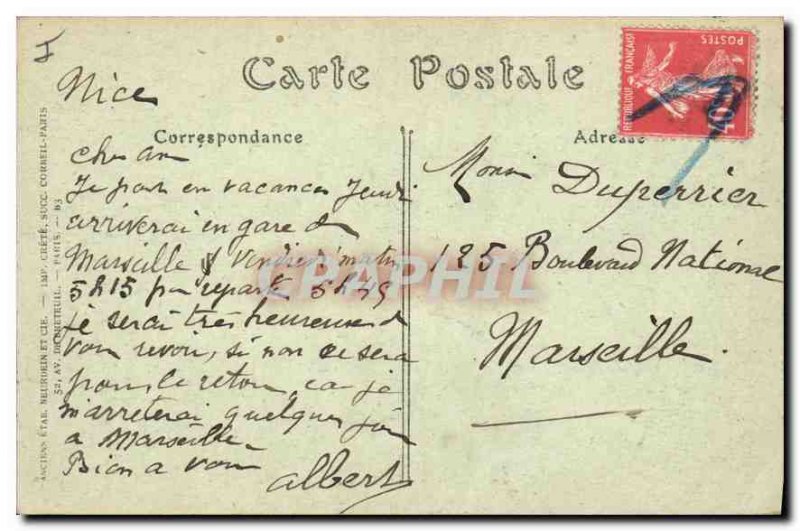 Carte Postale
POSTES
REPUBLIQUE FRANÇAISE
10
Nice
Correspondance
Adresse
Cher ami
Je pars en vacances Jeudi
arriverai en gare de
Marseille Vendredi matin
5h15 pour repartir 5h45
je serai tres heureux de
vous revoir, si non ce sera
pour le retour, car je
m'arreterai quelques jours
a Marseille.
Bien a vous
Albert
Monsieur Duperrier
135 Boulevard National
Marseille.
ANCIENS ÉTAB. NEURDEIN ET CIE. — IMP. CRÉTÉ, SUCC. CORBEIL-PARIS
52, AV. DE BRETEUIL. — PARIS. — B3
CPAPHIL